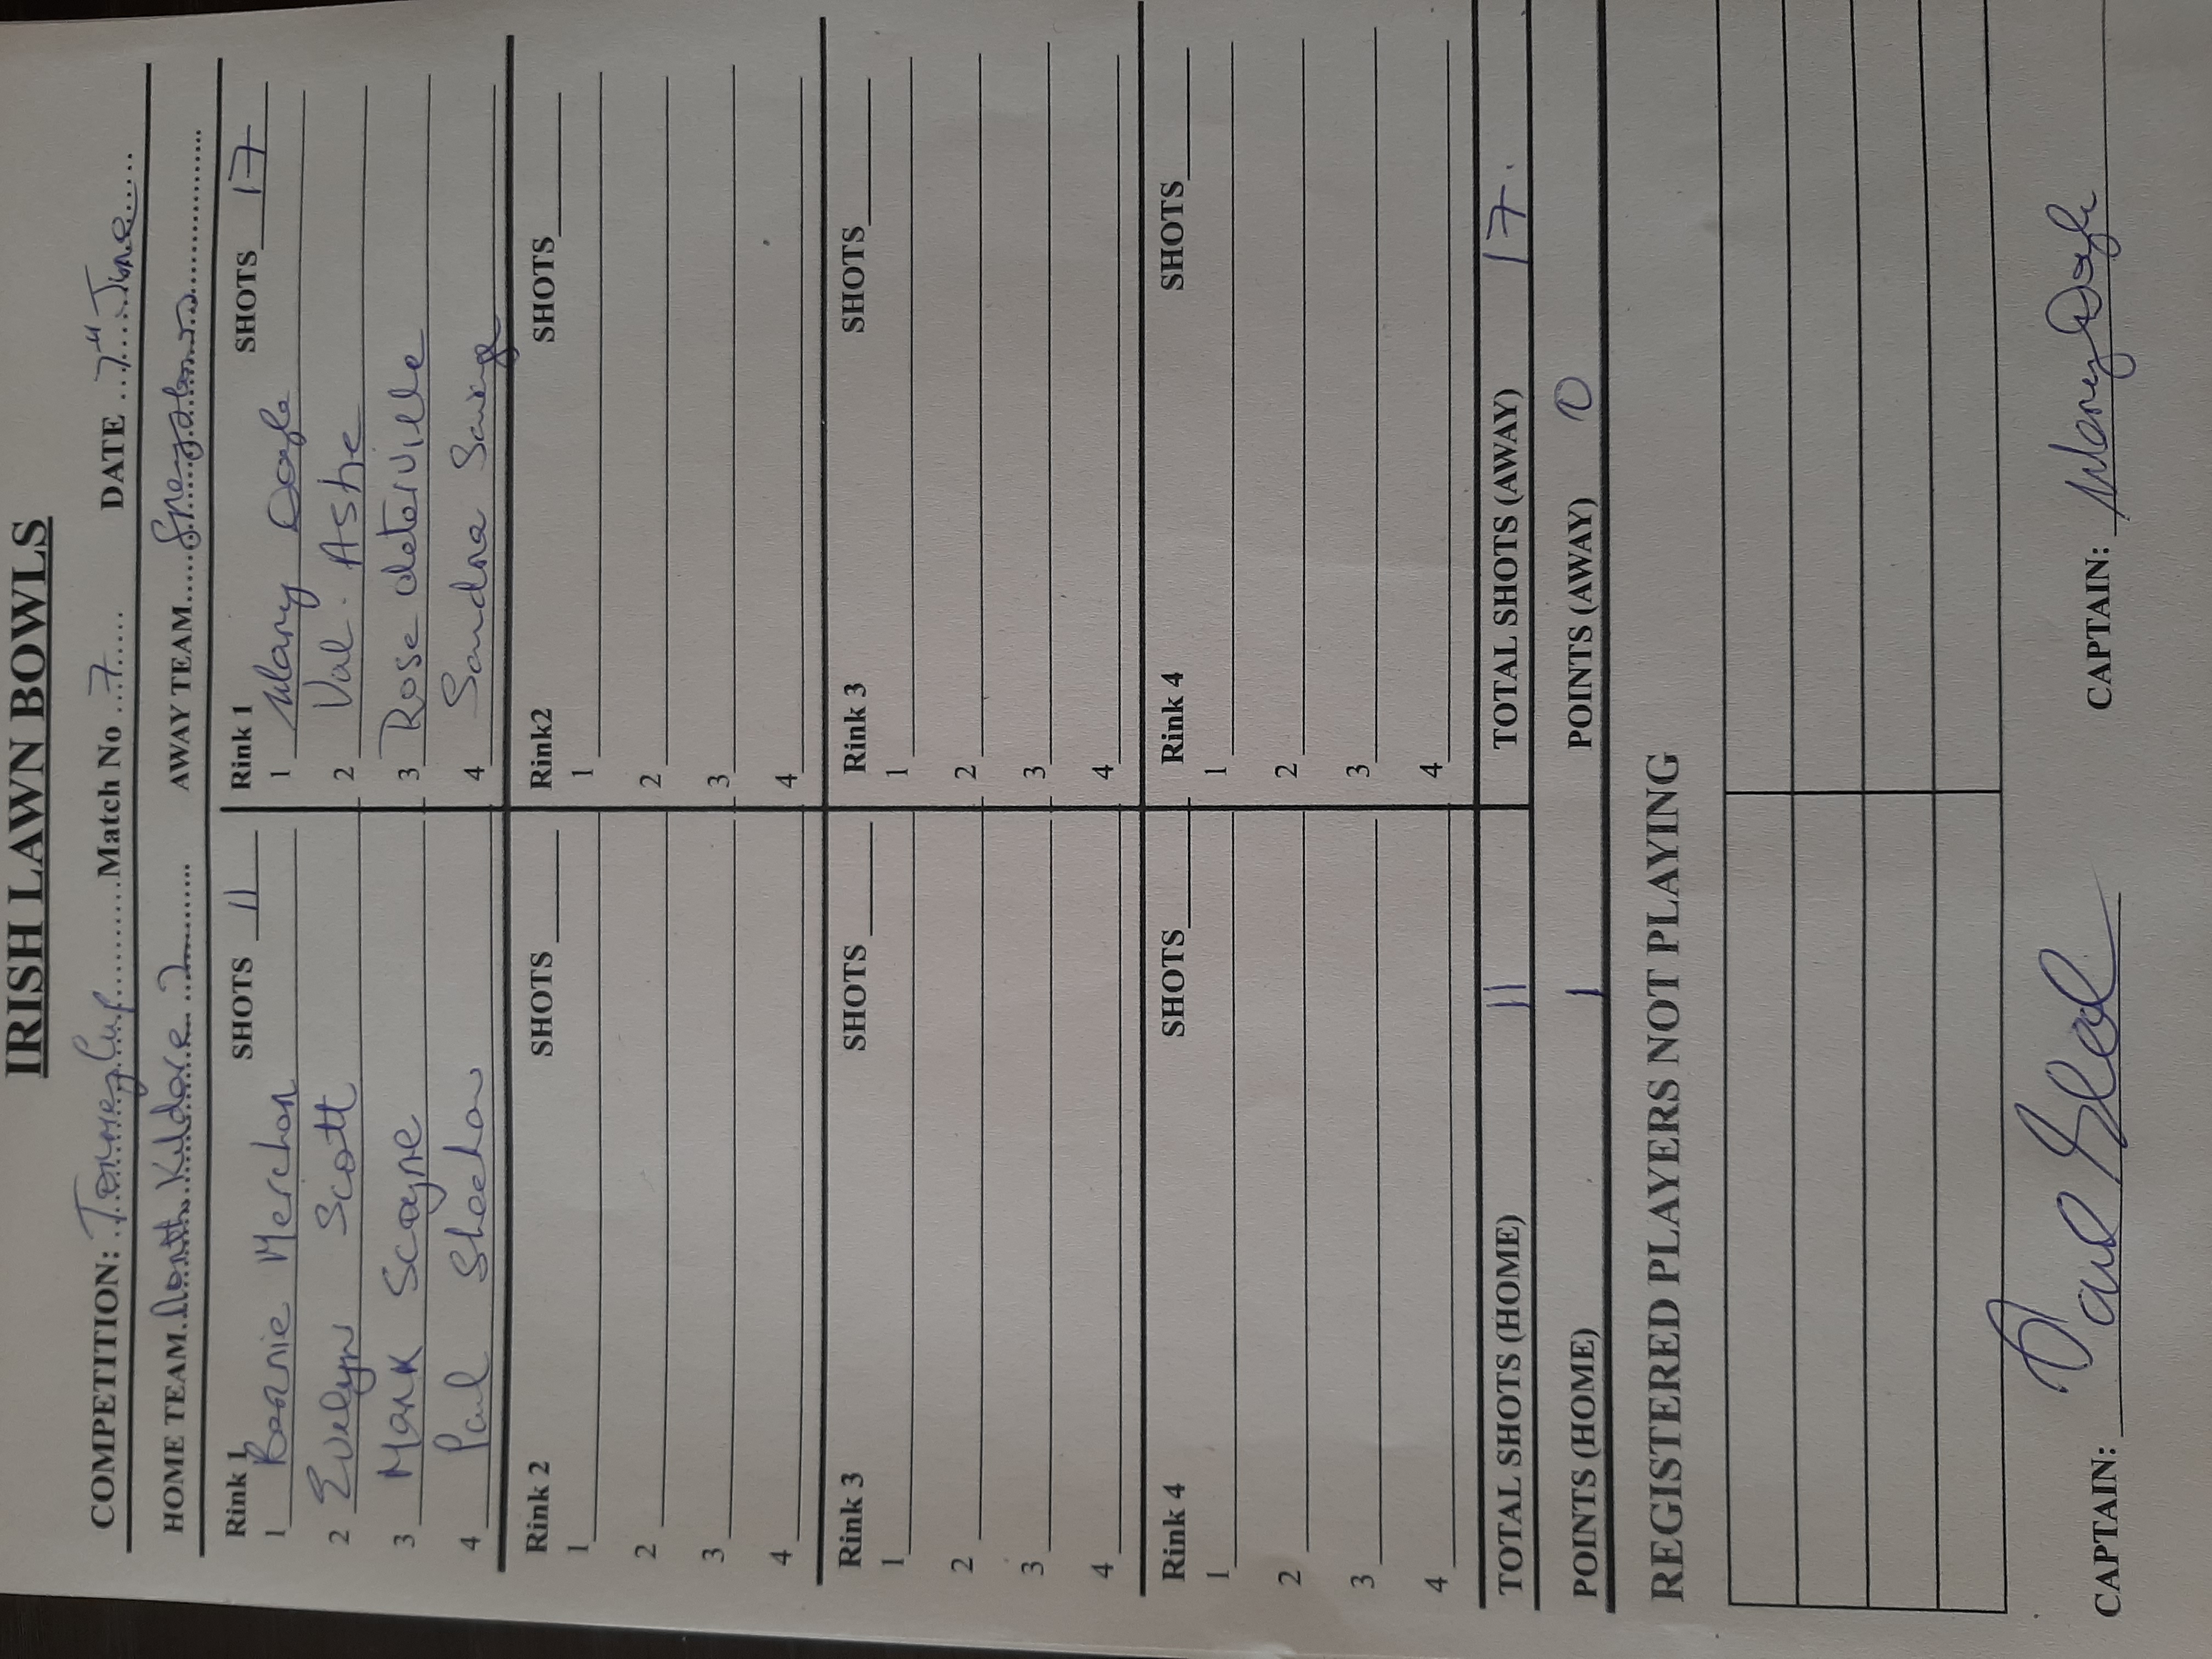 IRISH LAWN BOWLS
COMPETITION: Tormey Cup Match No 7 DATE 7th June
HOME TEAM North Kildare 2 AWAY TEAM
Rink 1 SHOTS 11 Rink 1 SHOTS 17
1 Merchan 1 Mary Doyle
2 Evelyn Scott 2 Val. Ashe
3 Mark Scayne 3 Rose deterville
4 Paul Sheehan 4 Sandra Savage
Rink 2 SHOTS Rink2 SHOTS
1 1
2 2
3 3
4 4
Rink 3 SHOTS Rink 3 SHOTS
1 1
2 2
3 3
4 4
Rink 4 SHOTS Rink 4 SHOTS
1 1
2 2
3 3
4 4
TOTAL SHOTS (HOME) 11 TOTAL SHOTS (AWAY) 17.
POINTS (HOME) 1 POINTS (AWAY) 0
REGISTERED PLAYERS NOT PLAYING
CAPTAIN: Paul CAPTAIN: Mary Doyle